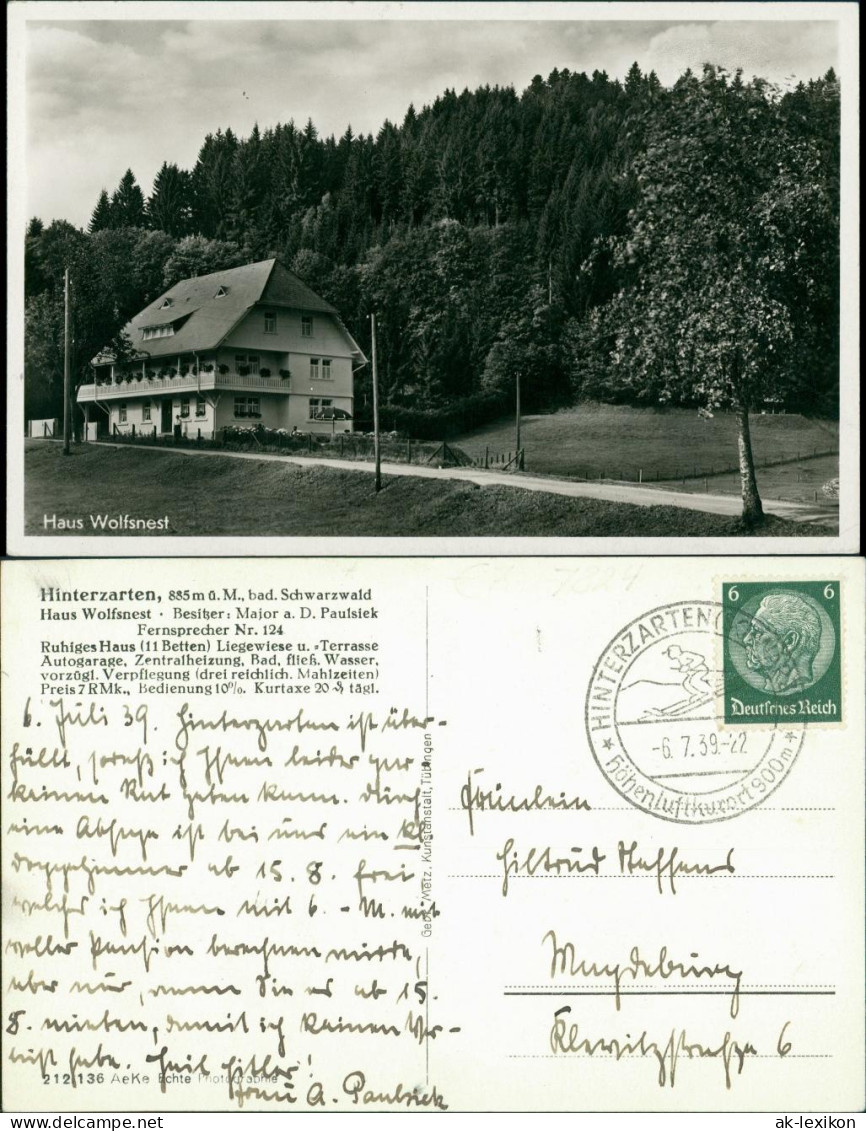 Haus Wolfsnest
Hinterzarten, 885 m ü. M., bad. Schwarzwald
Haus Wolfsnest · Besitzer: Major a. D. Paulsiek
Fernsprecher Nr. 124
Ruhiges Haus (11 Betten) Liegewiese u. -Terrasse
Autogarage, Zentralheizung, Bad, fließ. Wasser,
vorzügl. Verpflegung (drei reichlich. Mahlzeiten)
Preis 7 RMk., Bedienung 10%. Kurtaxe 20 ₰ tägl.
6. Juli 39. Hinterzarten ist über-
füllt, sodaß ich Ihnen leider gar
keinen Rat geben kann. Durch
eine Absage ist bei uns ein kl.
Doppelzimmer ab 15. 8. frei
welches ich Ihnen mit 6.- M. mit
voller Pension berechnen würde,
aber nur, wenn Sie es ab 15.
8. mieten, damit ich keinen Ver-
lust habe. Heil Hitler!
Frau A. Paulsiek
212,136 AeKe Echte Photographie
Gebr. Metz, Kunstanstalt, Tübingen
HINTERZARTEN
-6.7.39.-22
Höhenluftkurort 900m
6 6
Deutsches Reich
Fräulein
Hiltrud Steffens
Magdeburg
Klewitzstraße 6
ak-lexikon.de
ak-lexikon